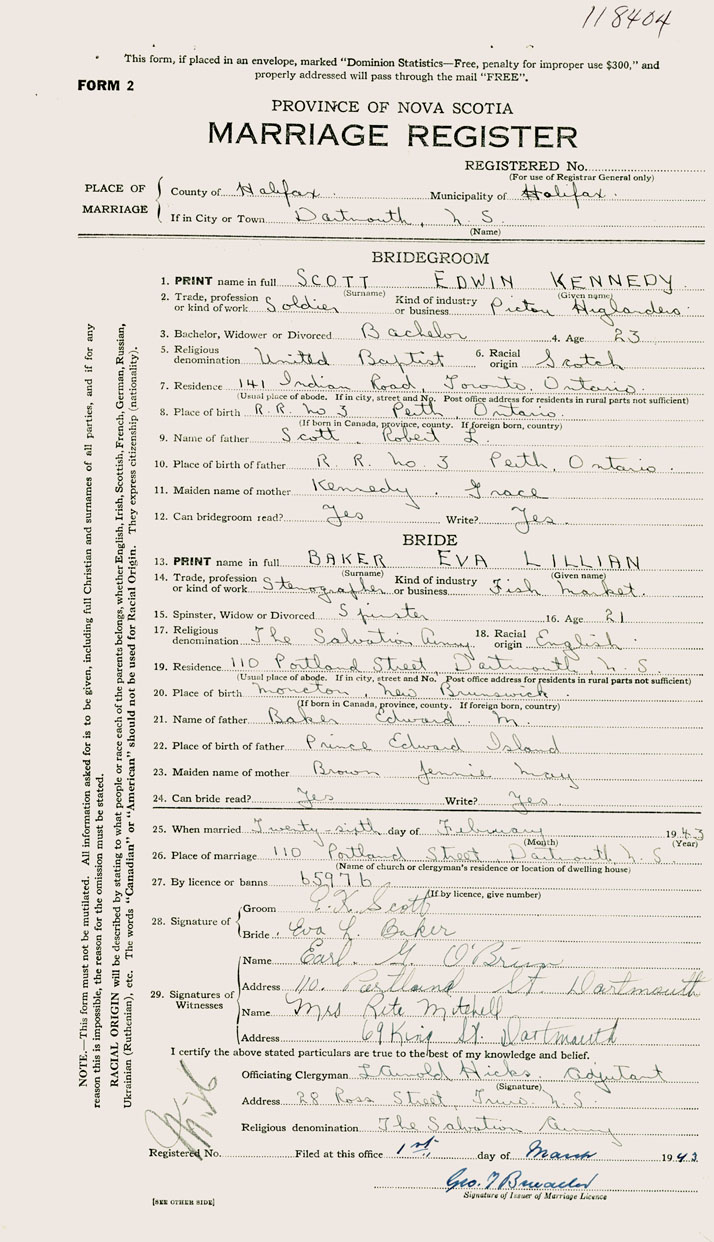 118404
This form, if placed in an envelope, marked "Dominion Statistics—Free, penalty for improper use $300," and
properly addressed will pass through the mail "FREE".
FORM 2
PROVINCE OF NOVA SCOTIA
MARRIAGE REGISTER
REGISTERED No.
(For use of Registrar General only)
PLACE OF MARRIAGE
County of Halifax. Municipality of Halifax.
If in City or Town Dartmouth, N.S.
(Name)
BRIDEGROOM
1. PRINT name in full SCOTT EDWIN KENNEDY
(Surname) (Given name)
2. Trade, profession or kind of work Soldier Kind of industry or business Pictou Highlanders
3. Bachelor, Widower or Divorced Bachelor 4. Age 23
5. Religious denomination United Baptist 6. Racial origin Scotch
7. Residence 141 Indian Road, Toronto, Ontario.
(Usual place of abode. If in city, street and No. Post office address for residents in rural parts not sufficient)
8. Place of birth R.R. No 3 Perth, Ontario.
(If born in Canada, province, county. If foreign born, country)
9. Name of father Scott, Robert L.
10. Place of birth of father R. R. No. 3 Perth, Ontario.
11. Maiden name of mother Kennedy, Grace
12. Can bridegroom read? Yes Write? Yes.
BRIDE
13. PRINT name in full BAKER EVA LILLIAN
(Surname) (Given name)
14. Trade, profession or kind of work Stenographer Kind of industry or business Fish Market.
15. Spinster, Widow or Divorced Spinster 16. Age 21
17. Religious denomination The Salvation Army. 18. Racial origin English.
19. Residence 110 Portland Street, Dartmouth, N.S.
(Usual place of abode. If in city, street and No. Post office address for residents in rural parts not sufficient)
20. Place of birth Moncton, New Brunswick.
(If born in Canada, province, county. If foreign born, country)
21. Name of father Baker Edward. M.
22. Place of birth of father Prince Edward Island
23. Maiden name of mother Brown Jennie May
24. Can bride read? Yes Write? Yes.
25. When married Twenty-sixth day of February 1943
(Month) (Year)
26. Place of marriage 110 Portland Street, Dartmouth N.S.
(Name of church or clergyman's residence or location of dwelling house)
27. By licence or banns 65976
(If by licence, give number)
28. Signature of
Groom E.K. Scott
Bride Eva L. Baker
29. Signatures of Witnesses
Name Earl. G. O'Brien
Address 110. Portland St. Dartmouth
Name Mrs Rita Mitchell
Address 69 King St. Dartmouth
I certify the above stated particulars are true to the best of my knowledge and belief.
Officiating Clergyman L Arnold Hicks Adjutant
(Signature)
Address 28 Ross Street, Truro N.S.
Religious denomination The Salvation Army
Registered No. Filed at this office 1st day of March 1943
Geo. T
Signature of Issuer of Marriage Licence
[SEE OTHER SIDE]
NOTE.—This form must not be mutilated. All information asked for is to be given, including full Christian and surnames of all parties, and if for any
reason this is impossible, the reason for the omission must be stated.
RACIAL ORIGIN will be described by stating to what people or race each of the parents belongs, whether English, Irish, Scottish, French, German, Russian,
Ukrainian (Ruthenian), etc. The words "Canadian" or "American" should not be used for Racial Origin. They express citizenship (nationality).